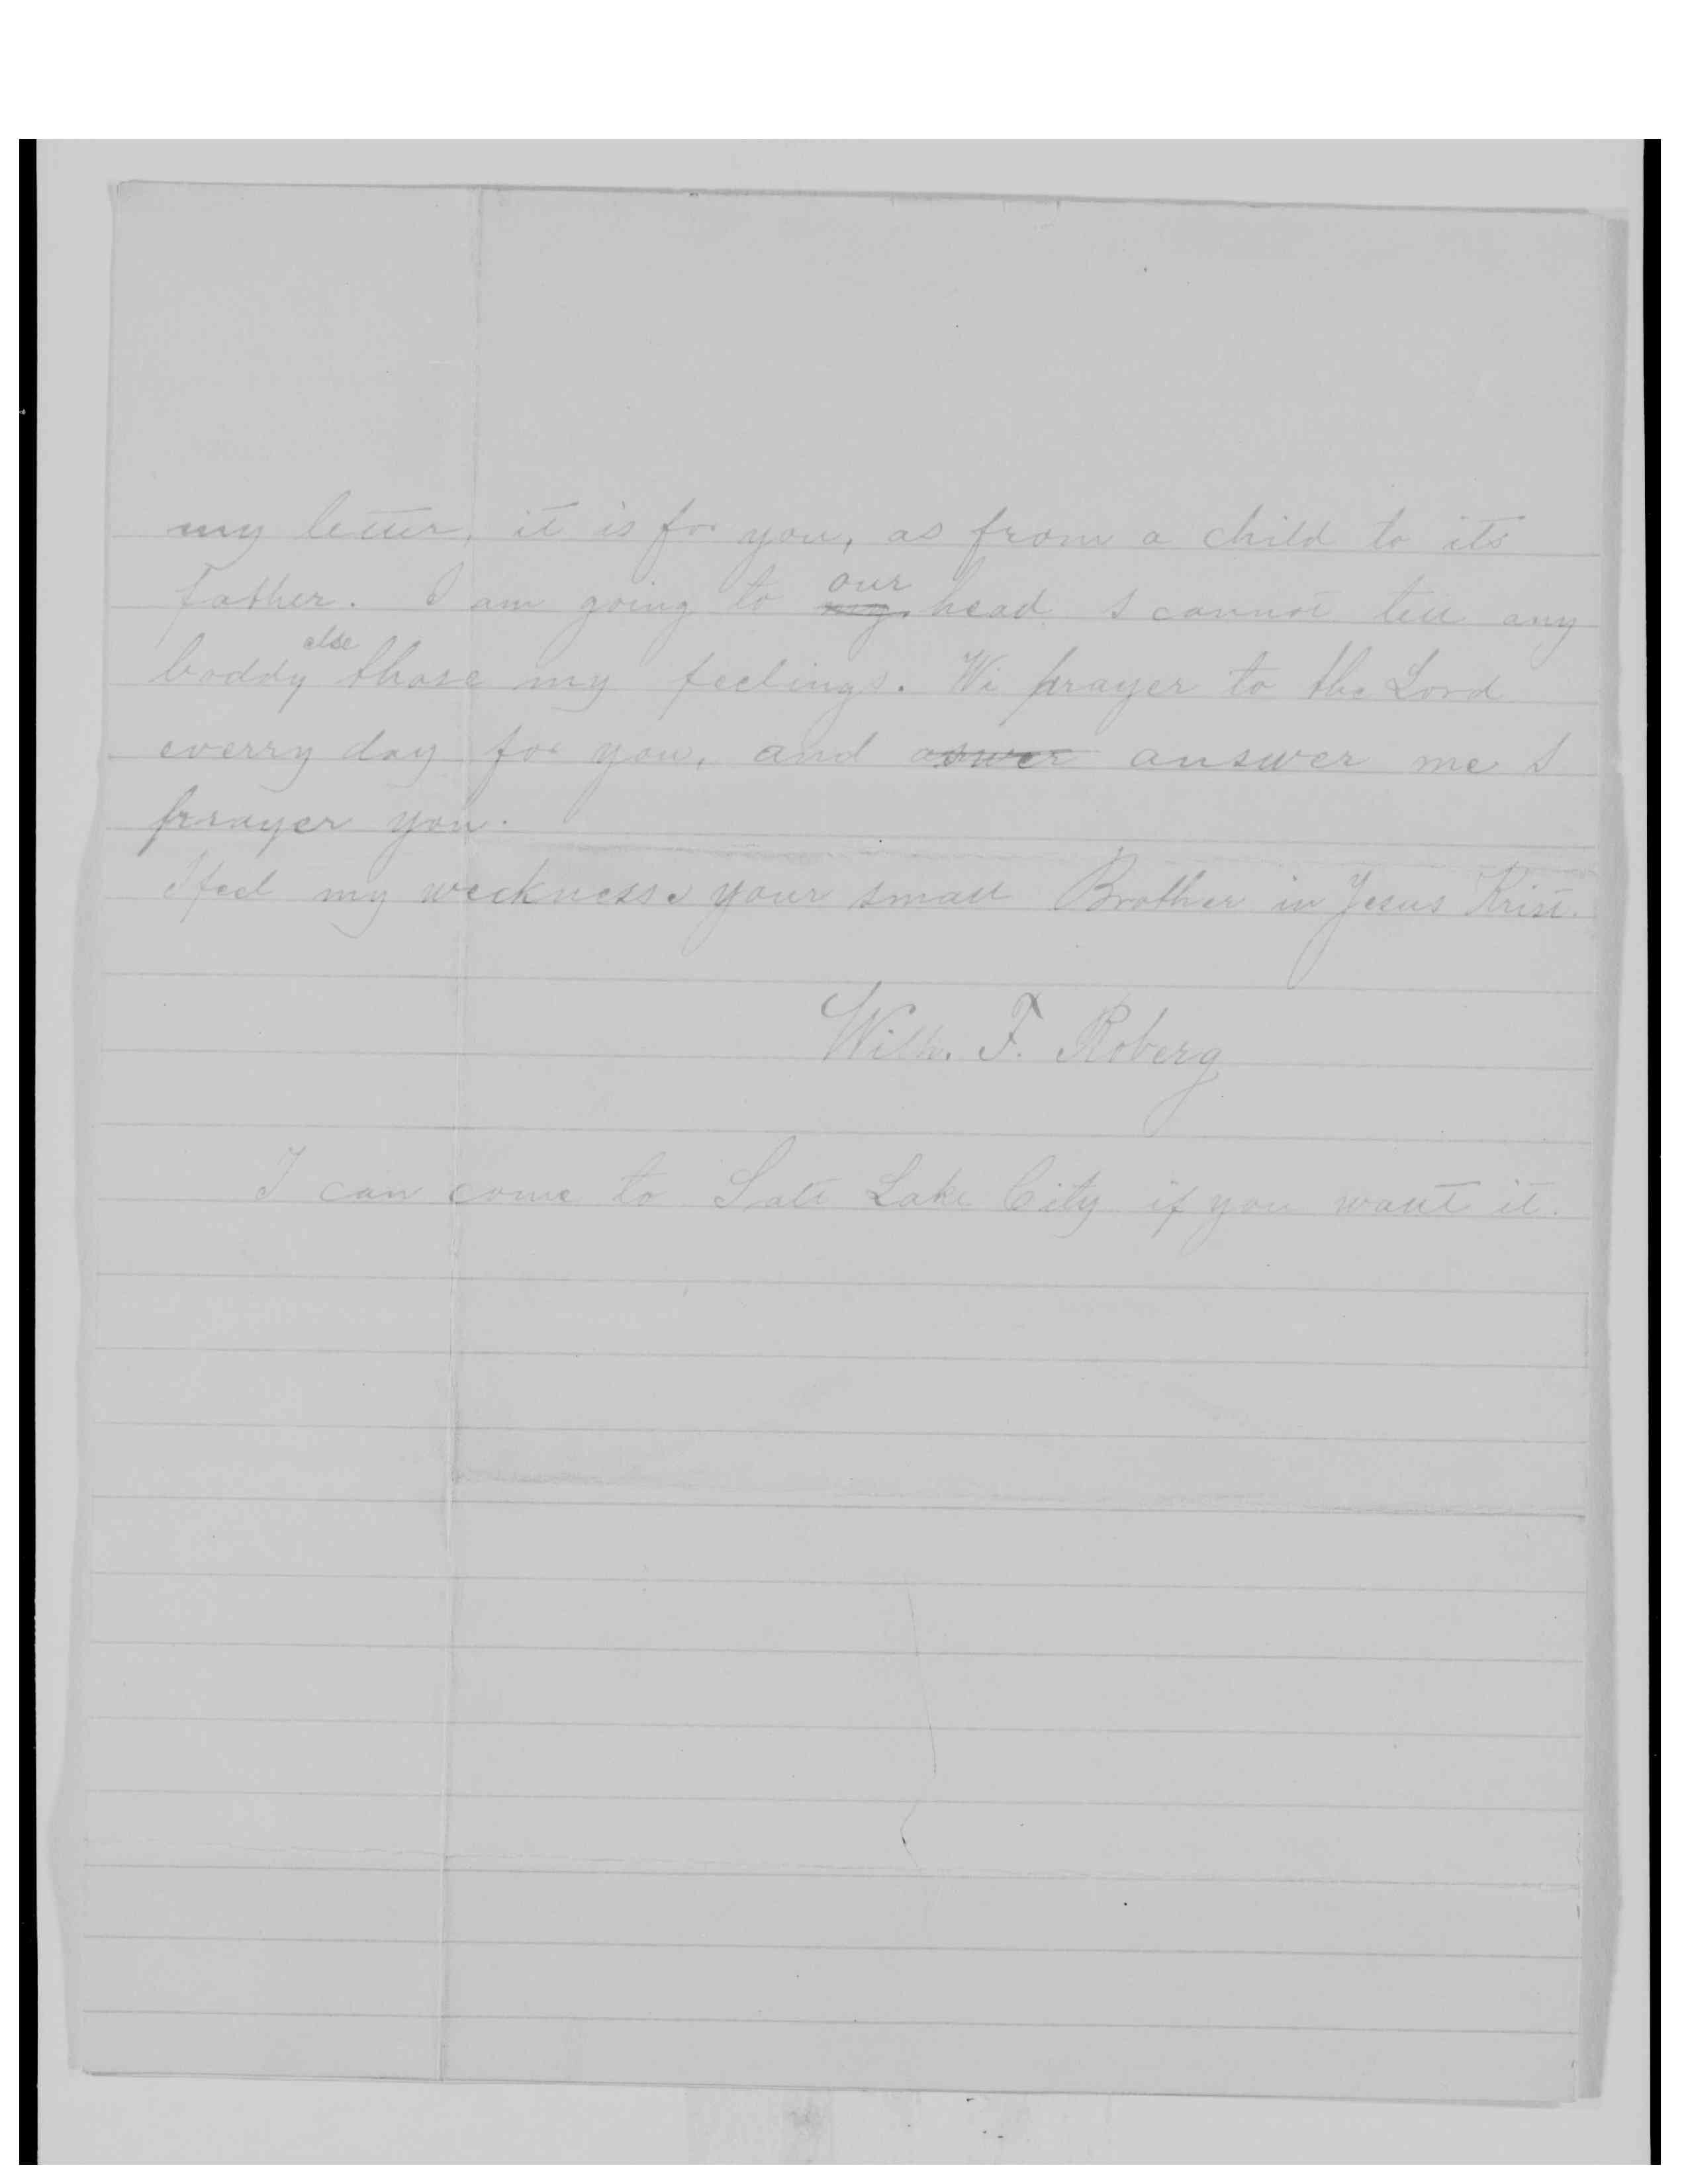 my letter, it is for you, as from a child to its
father. I am going to ~~my~~ our head I cannot tell any
boddy else those my feelings. Wi prayer to the Lord
everry day for you, and ~~aswer~~ answer me I
prayer you.
I feel my weckness. your small Brother in Jesus Krist.
Wilh. F. Roberg
I can come to Salt Lake City if you want it.